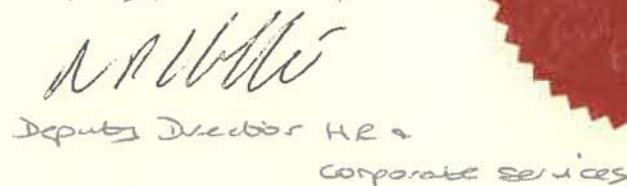 Deputy Director HR &
Corporate Services